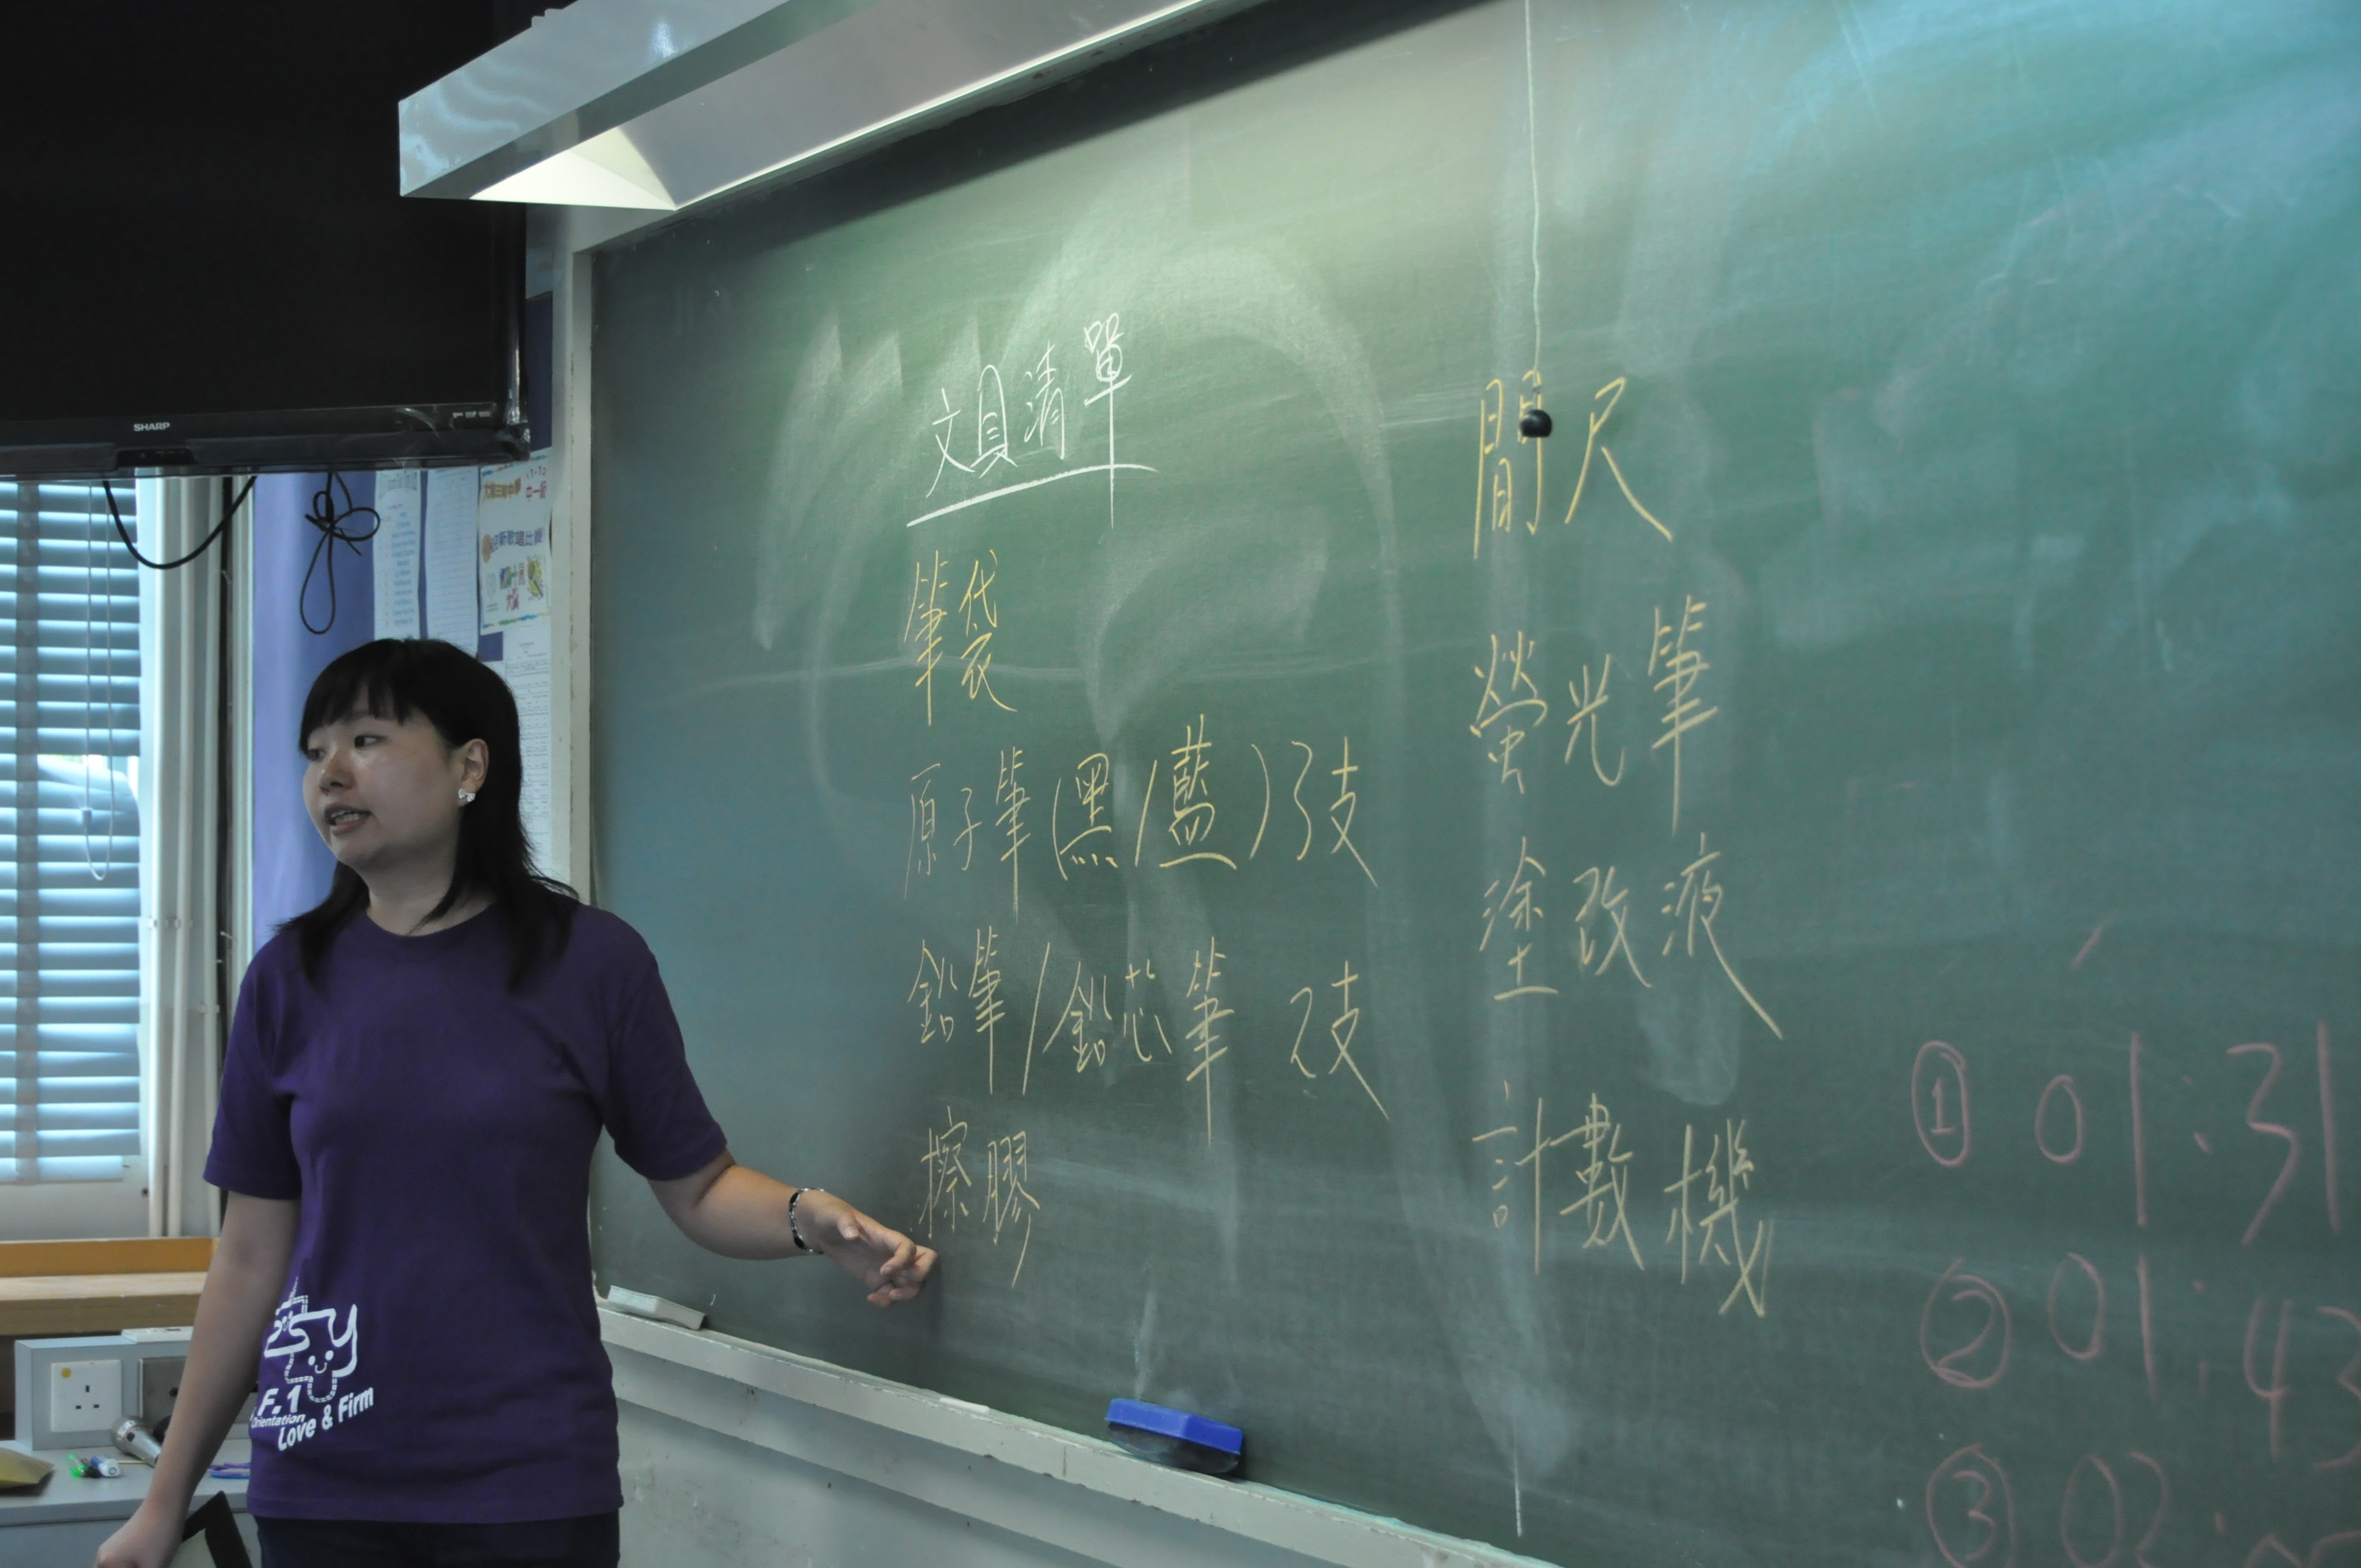 SHARP
文具清單
筆袋
原子筆(黑/藍)3支
鉛筆/鉛芯筆 2支
擦膠
間尺
螢光筆
塗改液
計數機
① 01:31
② 01:43
③ 02:
中一級
迎新歌唱比賽
F.1
Orientation
Love & Firm